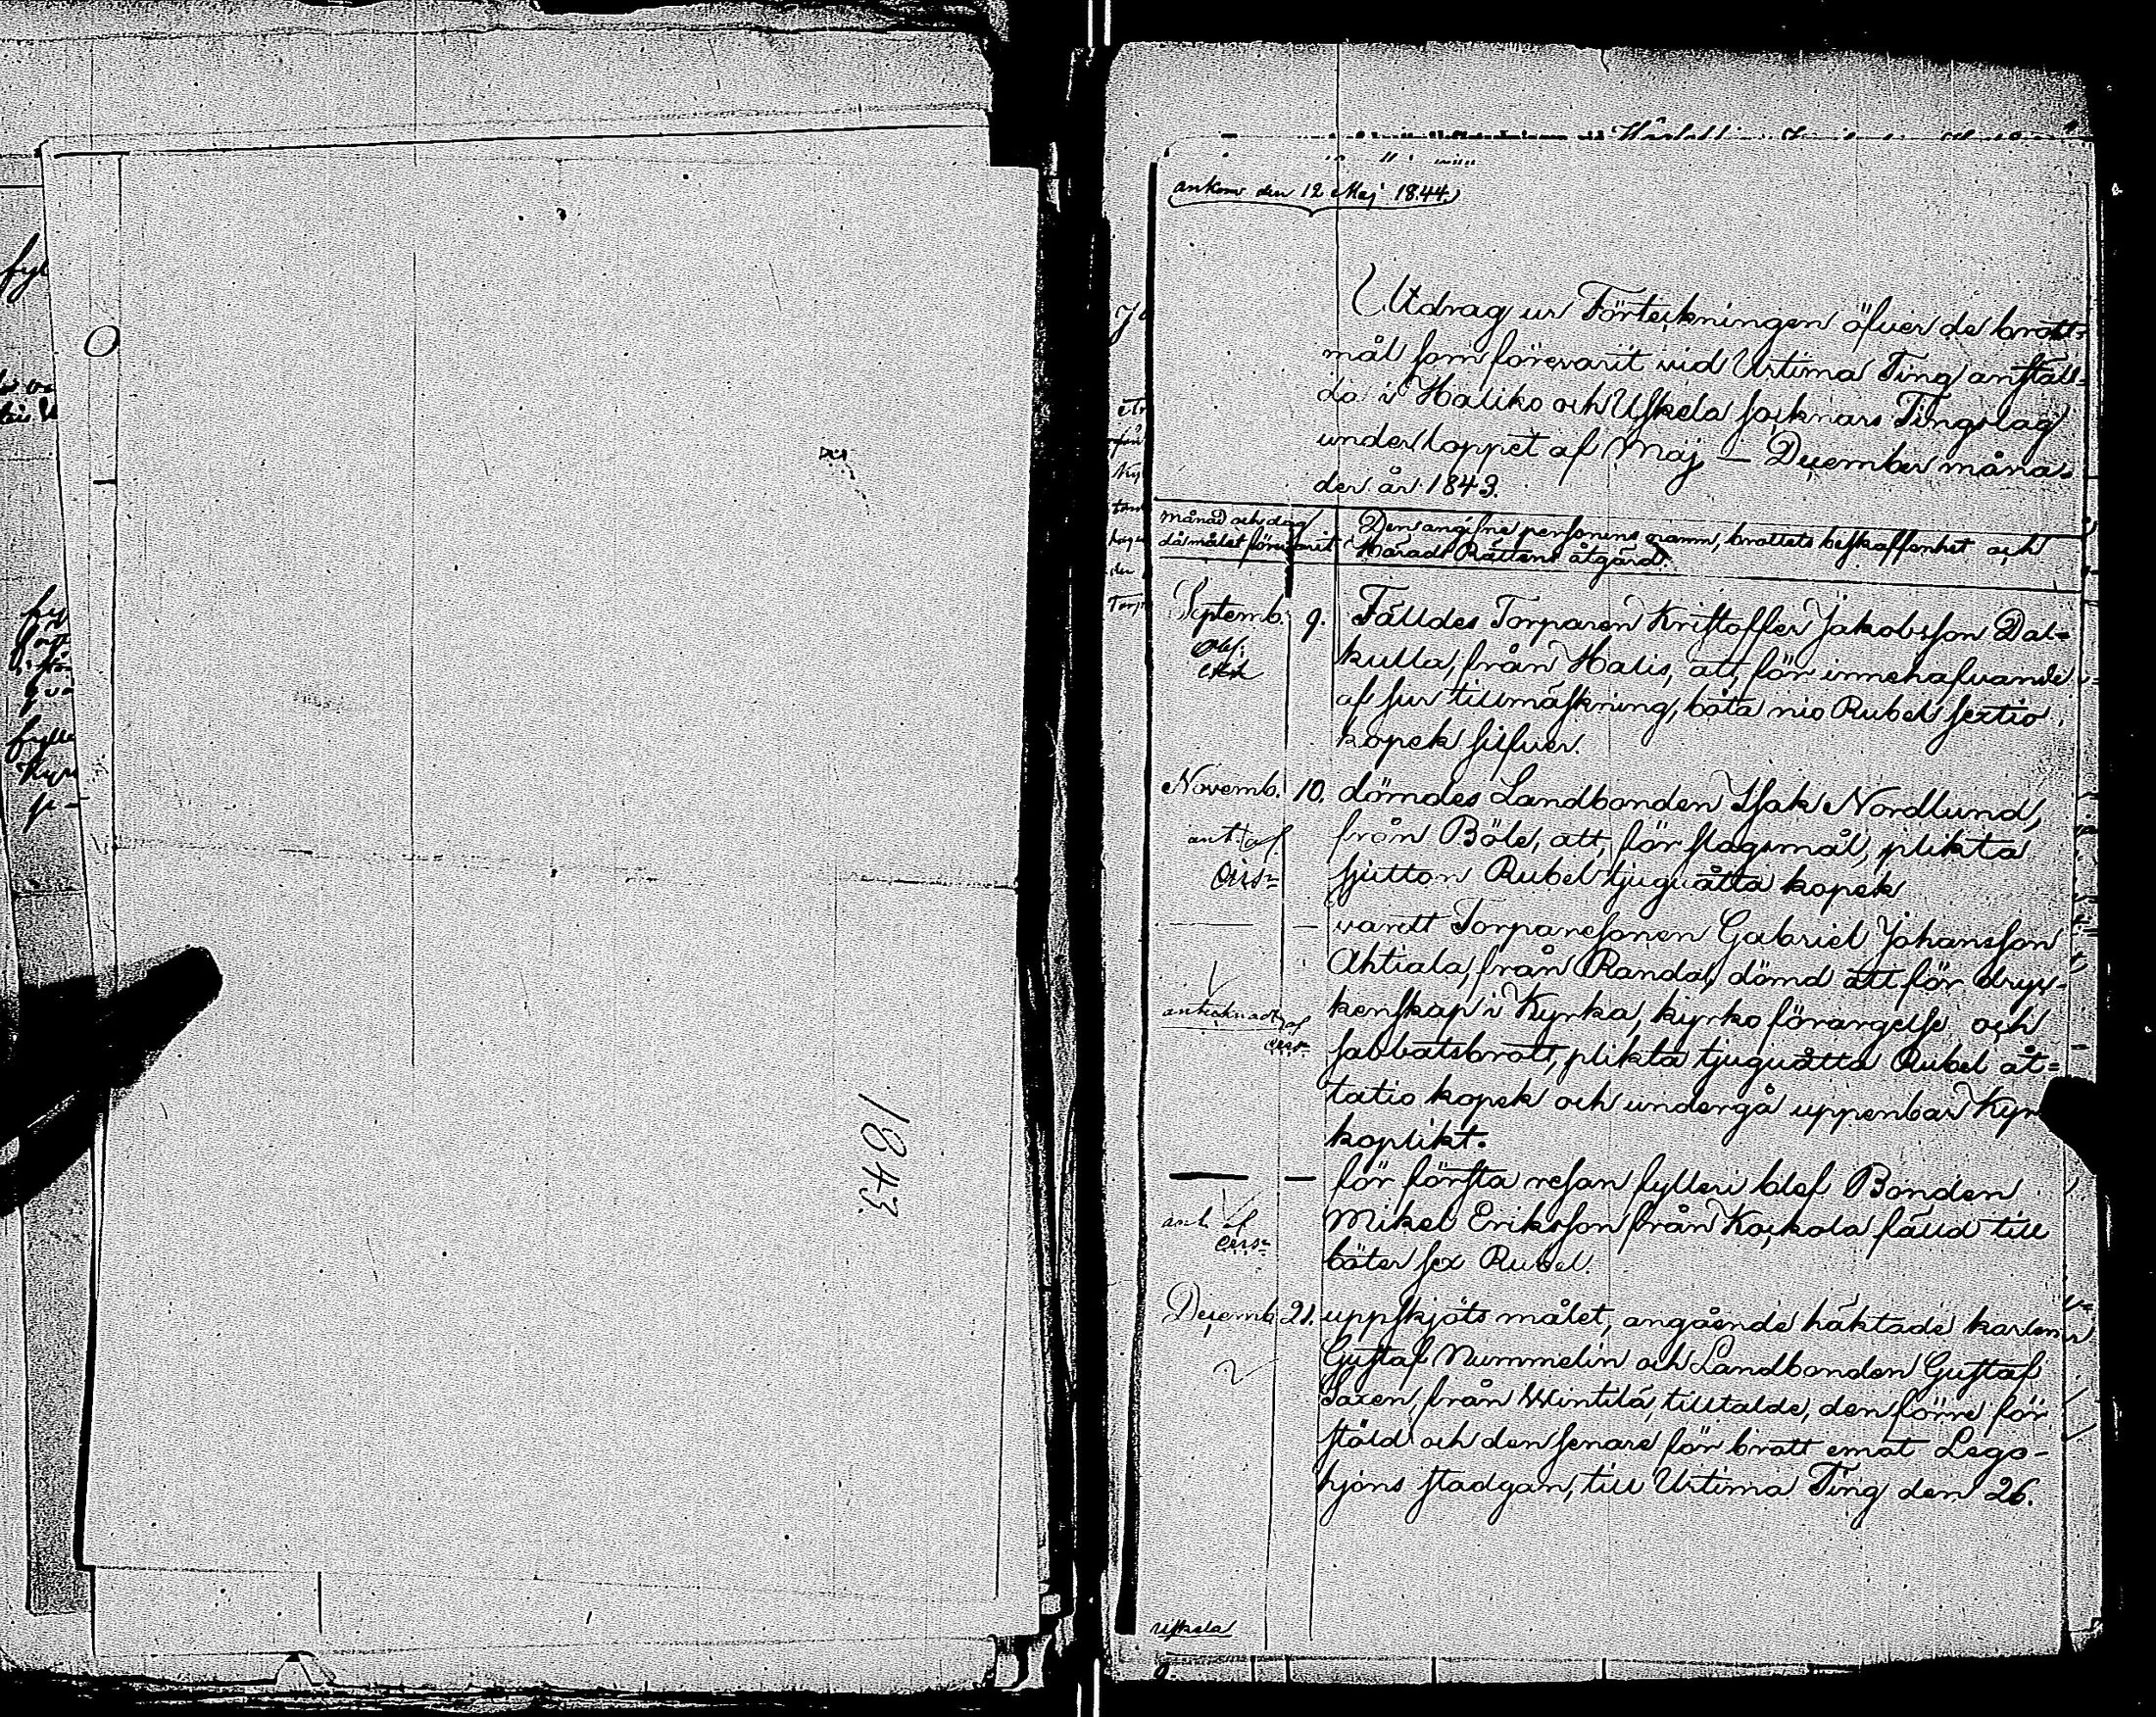 1843.
ankom den 12 Maj 1844.
Utdrag ur Förteckningen öfver de brott-
mål som förevarit vid Urtima Ting anställ-
da i Haliko och Uskela socknars Tingslag
under loppet af Maj — December måna-
der år 1843.
Månad och dag
då målet förevarit
Den angifne personens namn, brottets beskaffenhet och
Härads Rättens åtgärd.
Septemb. 9. Fälldes Torparen Kristoffer Jakobsson Dal-
kulla, från Halis, att, för innehafvande
af sur tillmäskning, böta nio Rubel sextio
kopek silfver.
Novemb. 10. dömdes Landbonden Isak Nordlund,
från Böle, att, för slagsmål, plikta
sjutton Rubel tjuguåtta kopek
ant. af
— — vardt Torparesonen Gabriel Johansson
Ahtiala, från Randa, dömd att för dryc-
kenskap i Kyrka, kyrko förargelse och
antecknadt af
sabbatsbrott, plikta tjuguåtta Rubel åt-
tatio kopek och undergå uppenbar Kyr
koplikt.
— — för första resan fylleri blef Bonden
Mikel Eriksson från Kockola fälld till
ant. af
böter sex Rubel.
Decemb. 21. uppskjöts målet, angående häktade karlen
Gustaf Nummelin och Landbonden Gustaf
Saxen, från Wintilä, tilltalde, den förre för
stöld och den senare för brott emot Lego-
hjons stadgan, till Urtima Ting den 26.
Uskela